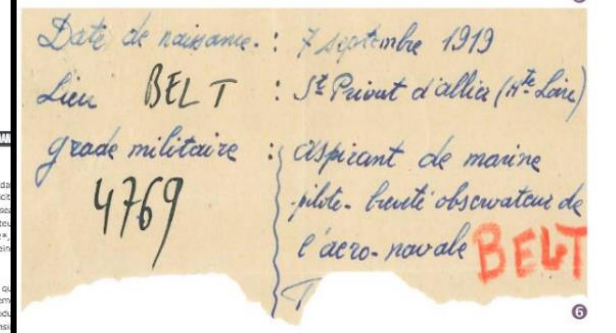 Date de naissance. : 7 septembre 1919
Lieu BELT : St Privat d'allier (Hte Loire)
grade militaire : aspirant de marine
4769
pilote - breveté observateur de
l'aero-navale BELT
6